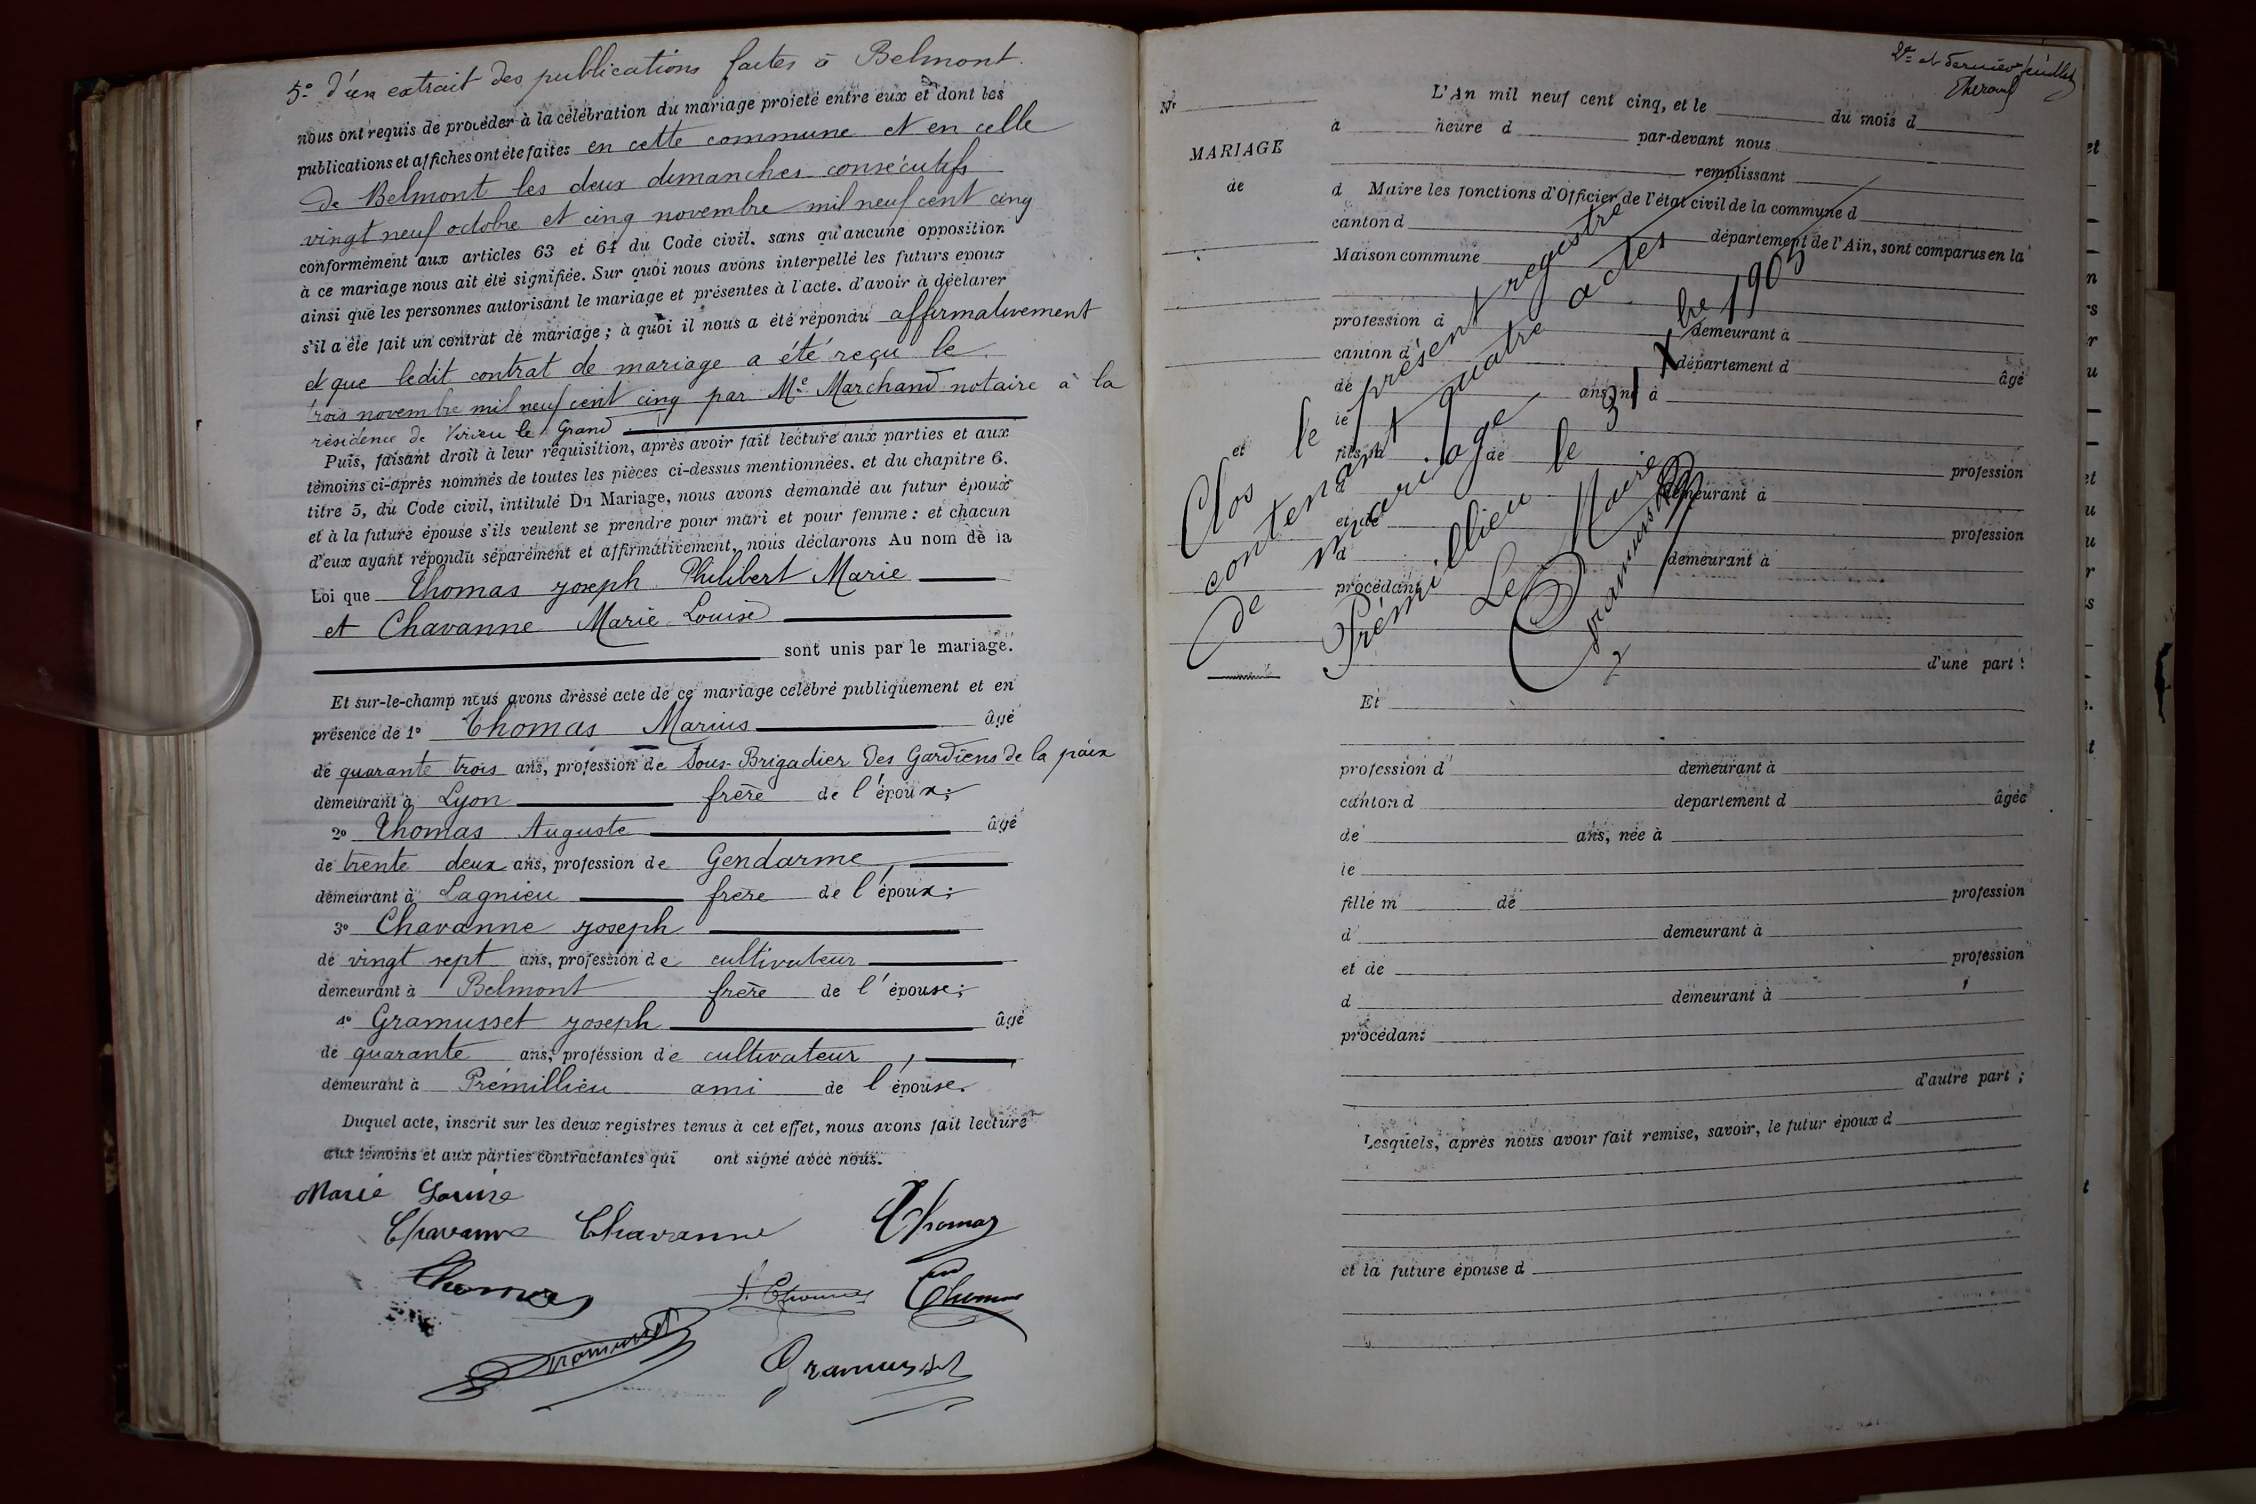 5° d'un extrait des publications faites à Belmont.
nous ont requis de procéder à la célébration du mariage projeté entre eux et dont les
publications et affiches ont été faites en cette commune et en celle
de Belmont les deux dimanches consécutifs
vingt neuf octobre et cinq novembre mil neuf cent cinq
conformément aux articles 63 et 64 du Code civil, sans qu'aucune opposition
à ce mariage nous ait été signifiée. Sur quoi nous avons interpellé les futurs epoux
ainsi que les personnes autorisant le mariage et présentes à l'acte, d'avoir à déclarer
s'il a été fait un contrat de mariage ; à quoi il nous a été répondu affirmativement
et que ledit contrat de mariage a été reçu le
trois novembre mil neuf cent cinq par Me Marchand notaire à la
résidence de Virieu le Grand
Puis, faisant droit à leur réquisition, après avoir fait lecture aux parties et aux
témoins ci-après nommés de toutes les pièces ci-dessus mentionnées, et du chapitre 6,
titre 5, du Code civil, intitulé Du Mariage, nous avons demandé au futur époux
et à la future épouse s'ils veulent se prendre pour mari et pour femme : et chacun
d'eux ayant répondu séparément et affirmativement, nous déclarons Au nom de la
Loi que Thomas Joseph Philibert Marie
et Chavanne Marie Louise
sont unis par le mariage.
Et sur-le-champ nous avons dressé acte de ce mariage célébré publiquement et en
présence de 1° Thomas Marius âgé
de quarante trois ans, profession de Sous-Brigadier des Gardiens de la paix
demeurant à Lyon frère de l'époux;
2° Thomas Auguste âgé
de trente deux ans, profession de Gendarme,
demeurant à Lagnieu frère de l'époux;
3° Chavanne Joseph
de vingt sept ans, profession de cultivateur
demeurant à Belmont frère de l'épouse;
4° Gramusset Joseph âgé
de quarante ans, profession de cultivateur,
demeurant à Prémillieu ami de l'épouse.
Duquel acte, inscrit sur les deux registres tenus à cet effet, nous avons fait lecture
aux témoins et aux parties contractantes qui ont signé avec nous.
Marie Louise
Chavanne Chavanne Thomas
Thomas J. Thomas Thomas
Gramusset Gramusset
2e et dernier feuillet
N°
MARIAGE
de
et
L'An mil neuf cent cinq, et le du mois d
à heure d par-devant nous
remplissant
d Maire les fonctions d'Officier de l'état civil de la commune d
canton d département de l'Ain, sont comparus en la
Maison commune
profession d demeurant à
canton d département d âgé
de ans, né à
le
fils m de profession
d demeurant à
et de profession
d demeurant à
procédant
d'une part :
Clos le présent registre
contenant quatre actes
de mariage
Prémillieu le 31 Xbre 1905
Le Maire
Gramusset
Et
profession d demeurant à
canton d departement d âgée
de ans, née à
le
fille m de profession
d demeurant à
et de profession
d demeurant à
procédant
d'autre part ;
Lesquels, après nous avoir fait remise, savoir, le futur époux d
et la future épouse d